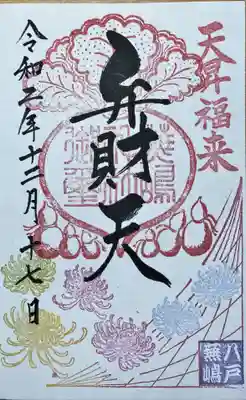 天昇福来
弁財天
令和二年十二月十七日
八戸
蕪嶋